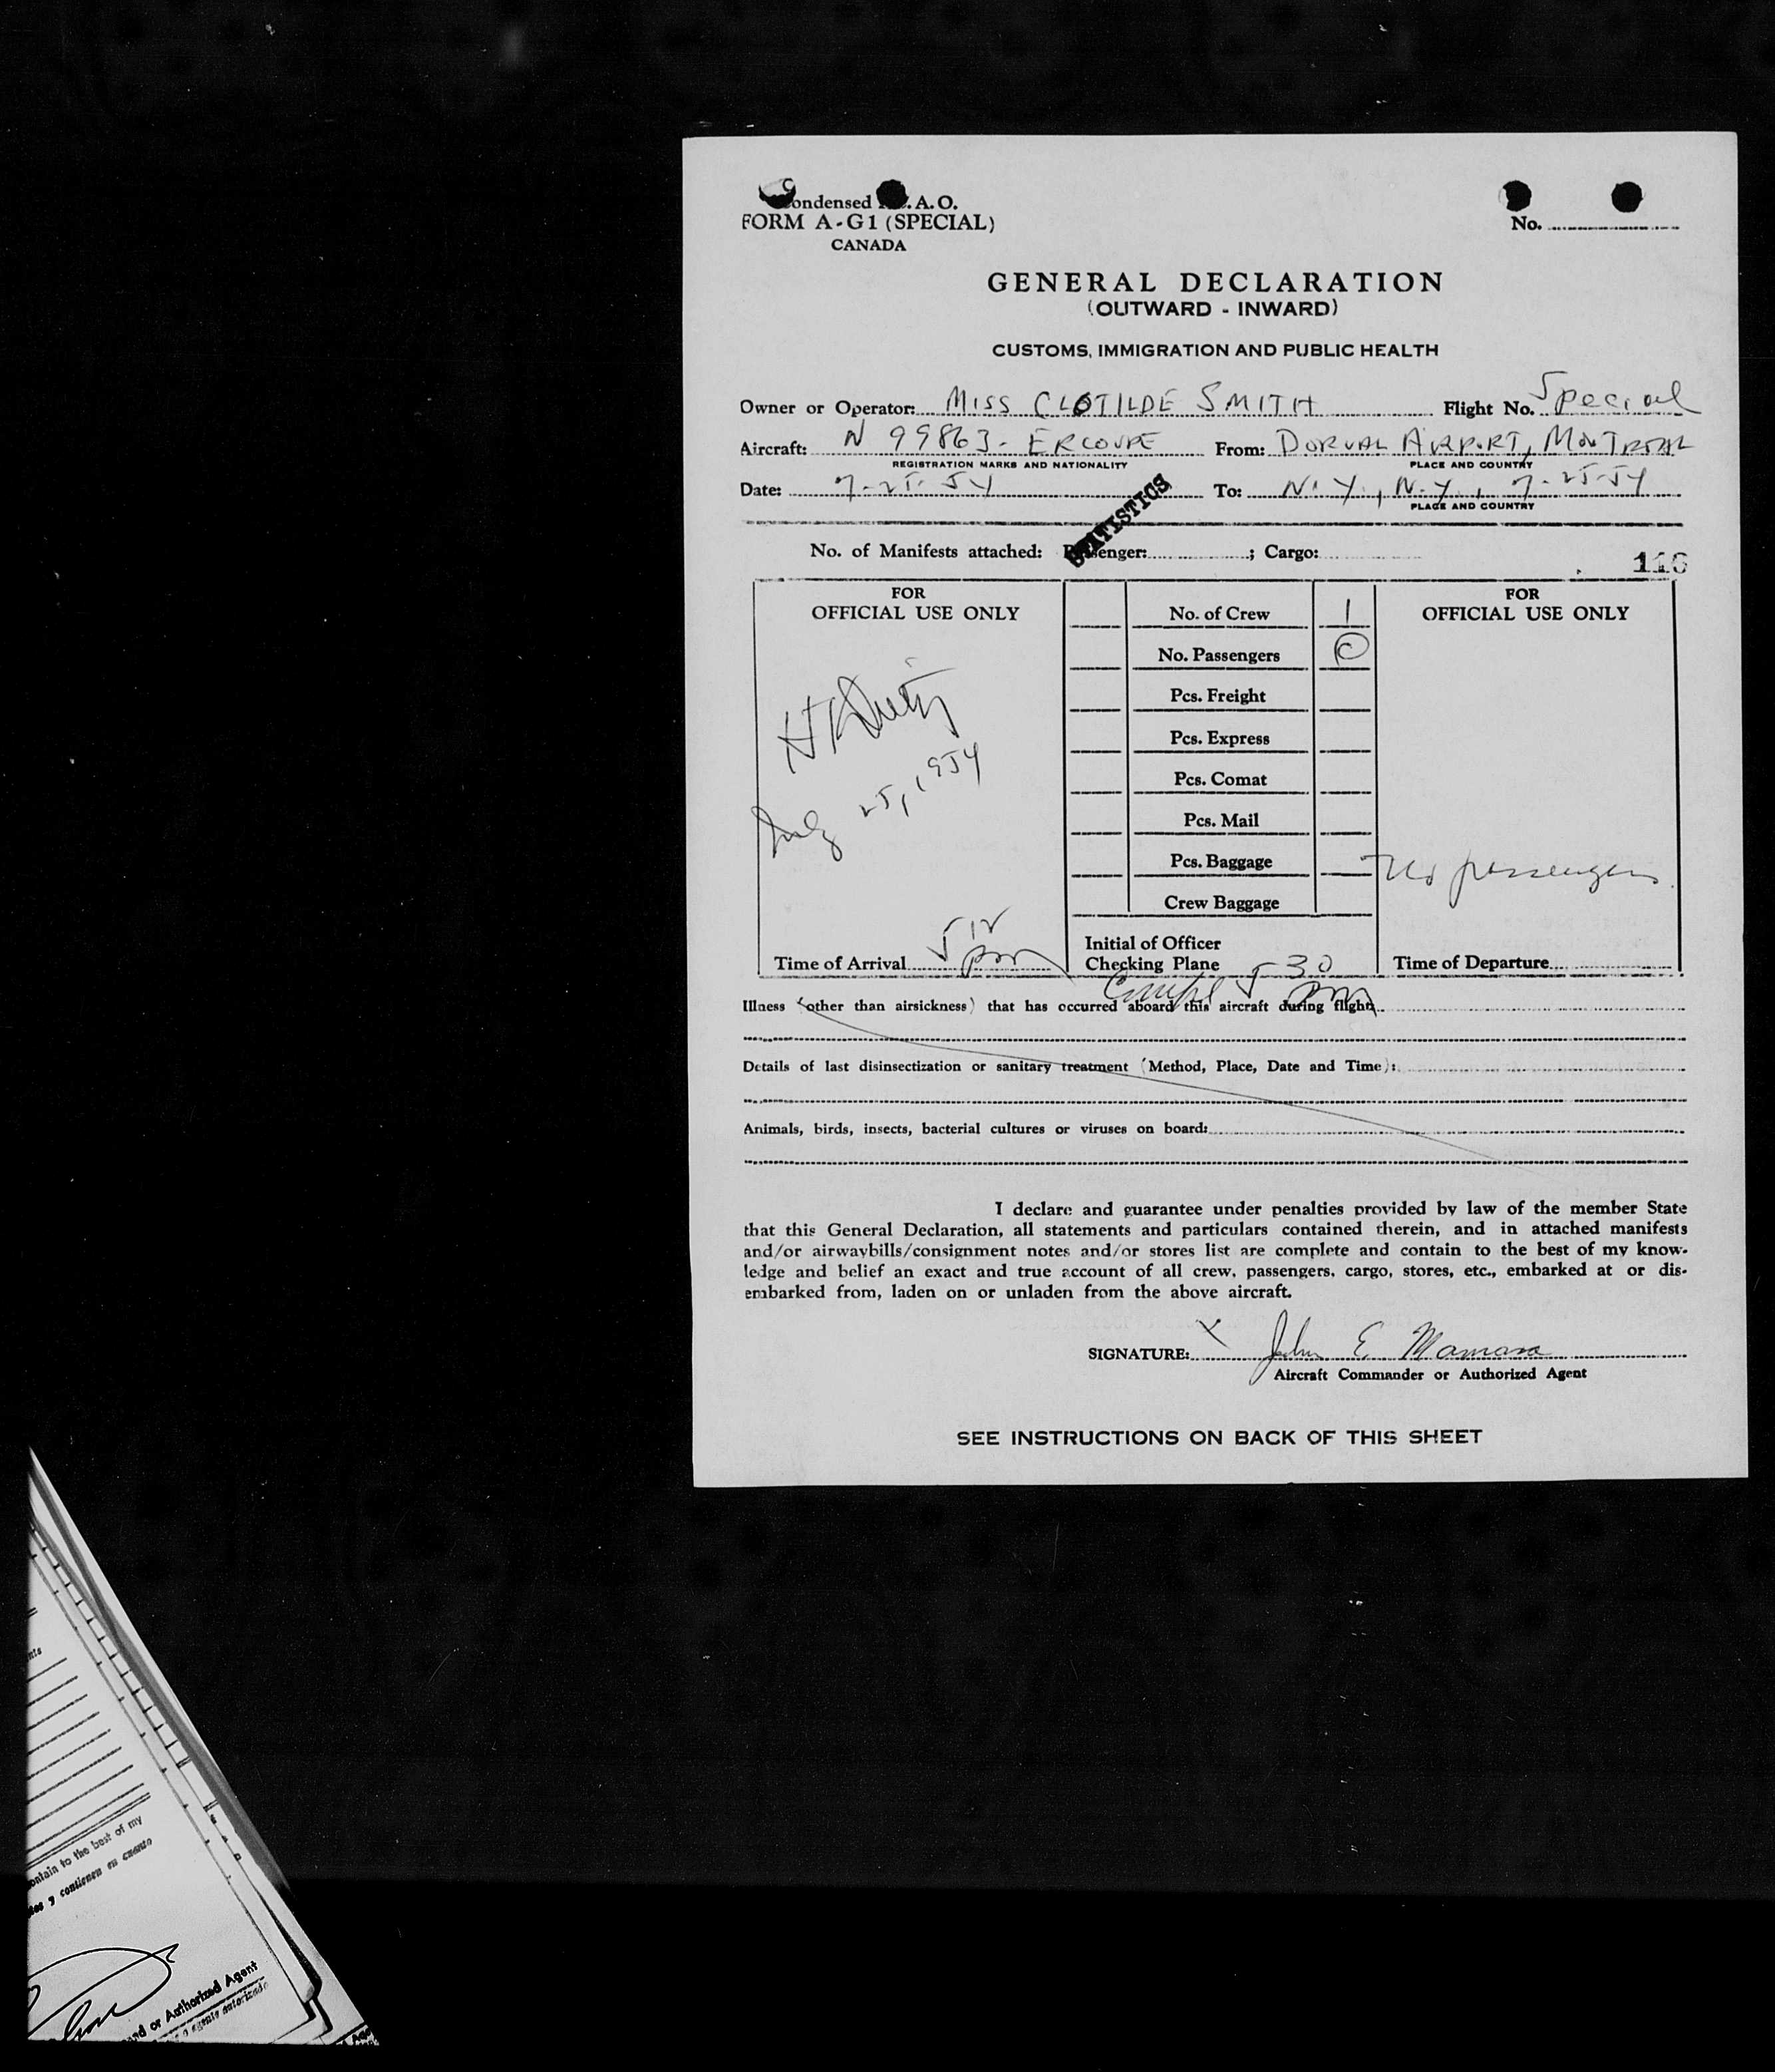 Condensed I.C.A.O.
FORM A-G1 (SPECIAL)
CANADA
No.
GENERAL DECLARATION
(OUTWARD - INWARD)
CUSTOMS, IMMIGRATION AND PUBLIC HEALTH
Owner or Operator: MISS CLOTILDE SMITH Flight No. Special
Aircraft: N 99863 - ERCOUPE From: DORVAL AIRPORT, MONTREAL
REGISTRATION MARKS AND NATIONALITY PLACE AND COUNTRY
Date: 7-25-54 To: N.Y., N.Y., 7-25-54
PLACE AND COUNTRY
STATISTICS
No. of Manifests attached: Passenger: ; Cargo:
116
FOR
OFFICIAL USE ONLY
No. of Crew 1
FOR
OFFICIAL USE ONLY
No. Passengers 0
Pcs. Freight
Pcs. Express
Pcs. Comat
July 25, 1954
Pcs. Mail
Pcs. Baggage
No passengers
Crew Baggage
Time of Arrival 5 12 pm
Initial of Officer
Checking Plane
Compl 5 30 pm
Time of Departure
Illness (other than airsickness) that has occurred aboard this aircraft during flight:
Details of last disinsectization or sanitary treatment (Method, Place, Date and Time):
Animals, birds, insects, bacterial cultures or viruses on board:
I declare and guarantee under penalties provided by law of the member State
that this General Declaration, all statements and particulars contained therein, and in attached manifests
and/or airwaybills/consignment notes and/or stores list are complete and contain to the best of my know-
ledge and belief an exact and true account of all crew, passengers, cargo, stores, etc., embarked at or dis-
embarked from, laden on or unladen from the above aircraft.
SIGNATURE: X John E. Mamana
Aircraft Commander or Authorized Agent
SEE INSTRUCTIONS ON BACK OF THIS SHEET
contain to the best of my
y contienen en cuanto
or Authorized Agent
o agente autorizado